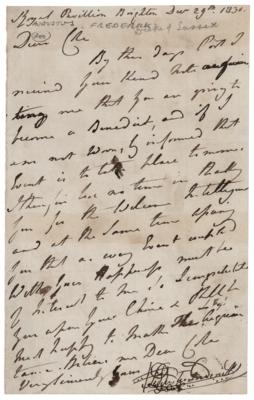 Royal Pavillion Brighton Dec 29th. 1830.
AUGUSTUS FREDERICK Duke of Sussex
Dear Coke
By this days Post I
received your kind Note acquain
ting me that you are going to
become a Benedict, and if I
am not wrongly informed that
Event is to take place tomorrow.
I therefore lose no time in thanking
you for the welcome Intelligence
and at the same time assuring
you that as every Event connected
with your Happiness must be
of interest to me So I congratulate
you upon your Choice &
most happy to make The
tance. Believe me Dear Coke
Very sincerely yours